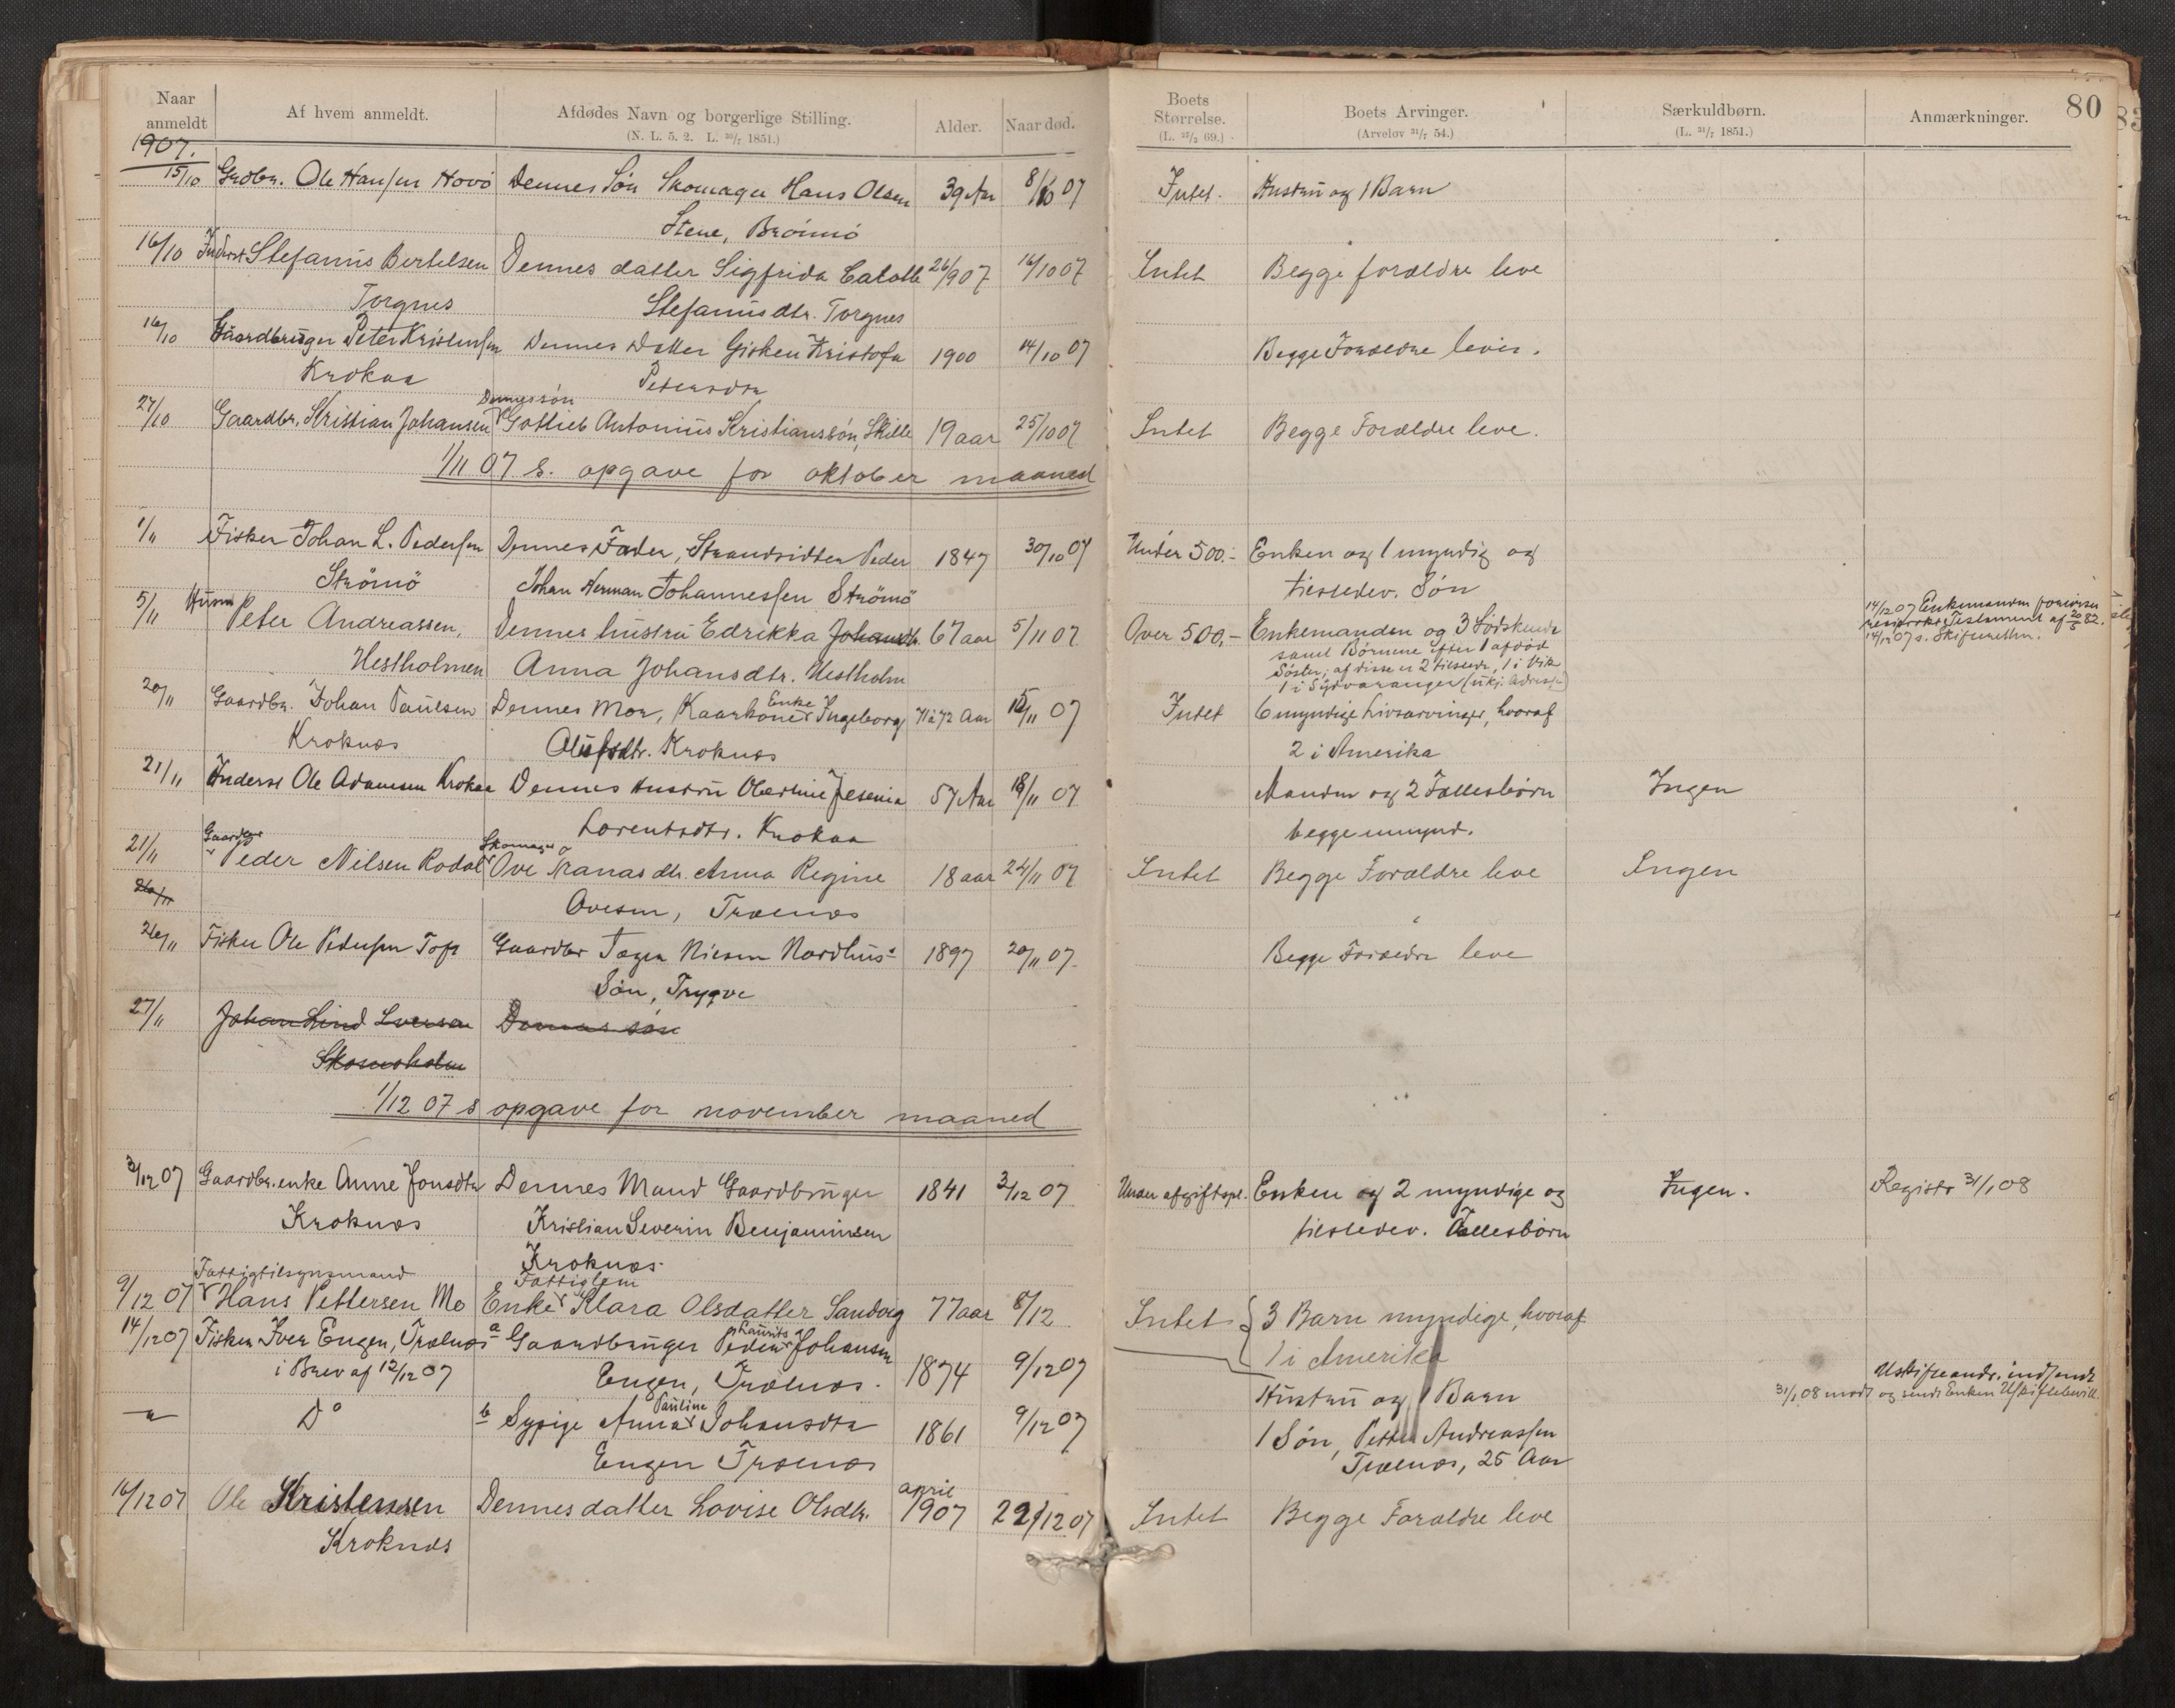 Naar anmeldt
Af hvem anmeldt.
Afdødes Navn og borgerlige Stilling.
(N. L. 5. 2. L. 30/7 1851.)
Alder.
Naar død.
Boets Størrelse.
(L. 27/3 69.)
Boets Arvinger.
(Arvelov 31/7 54.)
Særkuldbørn.
(L. 31/7 1851.)
Anmærkninger.
80
1907.
15/10 Grdbr. Ole Hansen Hovö Dennes Søn Skomager Hans Olsen 39 Aar 8/10 07 Intet. Hustru og 1 Barn
Stene, Brömö
16/10 Inderst Stefanus Bertelsen Dennes datter Sigfrida 26/9 07 14/10 07 Intet Begge forældre leve
Torgnes Stefanusdtr. Torgnes
16/10 Gaardbruger Peter Kristensen Dennes Datter Gisken Kristofa 1900 14/10 07 Begge Forældre lever.
Krokaa Petersdtr
27/10 Gaardbr. Kristian Johansen Dennes søn Gottlieb Antonius Kristianssøn, Skille 19 aar 25/10 07 Intet Begge Forældre leve.
1/11 07 s. opgave for oktober maaned
1/11 Fisker Johan L. Pedersen Dennes Fader, Strandsidder Peder 1847 30/10 07 Under 500.- Enken og 1 myndig og
Strömö Johan Herman Johannessen Strömö tilstedev. Søn
5/11 Husm Peter Andreassen, Dennes hustru Edrikka Johansdtr. 67 aar 5/11 07 Over 500,- Enkemanden og 3 Södskende
samt Børnene efter 1 afdød
Søster; af disse er 2 tilstede, 1 i Vik
1 i Sydvaranger (ukj. Adresse)
14/12 07 Enkemanden foreviser
Testament af 20/5 82.
14/12 07 s. Skifteretten.
Hestholmen Anna Johansdtr. Hestholm
20/11 Gaardbr. Johan Paulsen Dennes Mor, Kaarkone Enke Ingeborg 71 à 72 Aar 15/11 07 Intet 6 myndige Livsarvinger, hvoraf
Kroknæs Olufsdtr. Kroknæs 2 i Amerika
21/11 Inderst Ole Adamsen Krokaa Dennes Hustru Oberline Jesenia 57 Aar 18/11 07 Manden og 2 Fællesbørn Ingen
Lorentsdtr. Krokaa begge umynd.
21/11 Gaardbr Peder Nilsen Rodal Skomager Ove Tranas dtr. Anna Regine 18 aar 24/11 07 Intet Begge Forældre leve Ingen
26/11 Ovesen, Trælnæs
26/11 Fisker Ole Pedersen Toft Gaardbr Tæger Niesen Nordhus' 1897 20/11 07. Begge Forældre leve
Søn, Trygve
27/11 Johan Lind Iversen Dennes søn
1/12 07 s opgave for november maaned
3/12 07 Gaardbr. enke Anne Jonsdtr Dennes Mand Gaardbruger 1841 2/12 07 Under afgiftspl. Enken og 2 myndige og Ingen. Registr 31/1 08
Kroknæs Kristian Severin Benjaminsen tilstedev. Fællesbørn
Kroknæs.
Fattigtilsynsmand Fattiglem
9/12 07 Hans Pettersen Mo Enke Klara Olsdatter Sandvig 77 aar 8/12 Intet 3 Barn myndige, hvoraf
1 i Amerika
14/12 07 Fisker Iver Engen, Trælnæs a Gaardbruger Peder Laurits Johansen
i Brev af 12/12 07 Engen, Trælnæs. 1874 9/12 07 Hustru og 1 Barn
Uskifteandr. indsendt
31/1 08 modt og sendt Enken Uskiftebevill.
- " - Do b Sypige Anna Pauline Johansdtr 1861 9/12 07 1 Søn, Petter Andreassen
Engen Trælnæs Trælnæs, 25 Aar
16/12 07 Ole Kristensen Dennes datter Lovise Olsdtr. april 1907 22/12 07 Intet Begge Forældre leve
Kroknæs